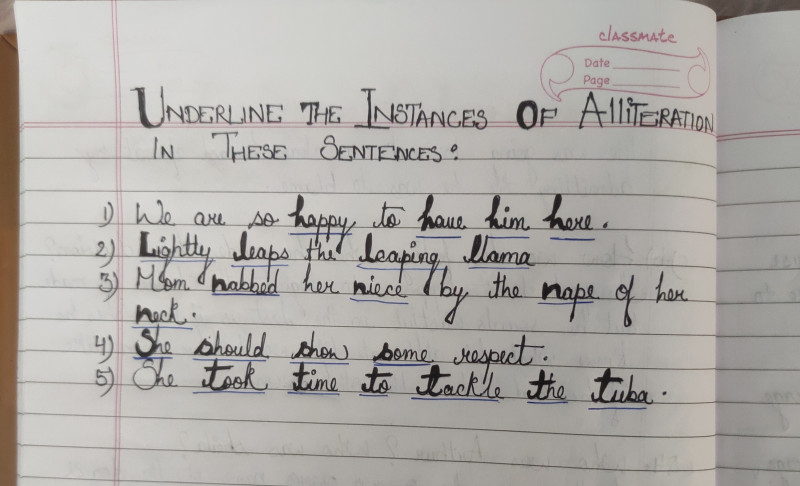 classmate
Date
Page
UNDERLINE THE INSTANCES OF AlliTERATION
IN THESE SENTENCES:
1) We are so happy to have him here.
2) Lightly leaps the leaping llama
3) Mom nabbed her niece by the nape of her
neck.
4) She should show some respect.
5) She took time to tackle the tuba.